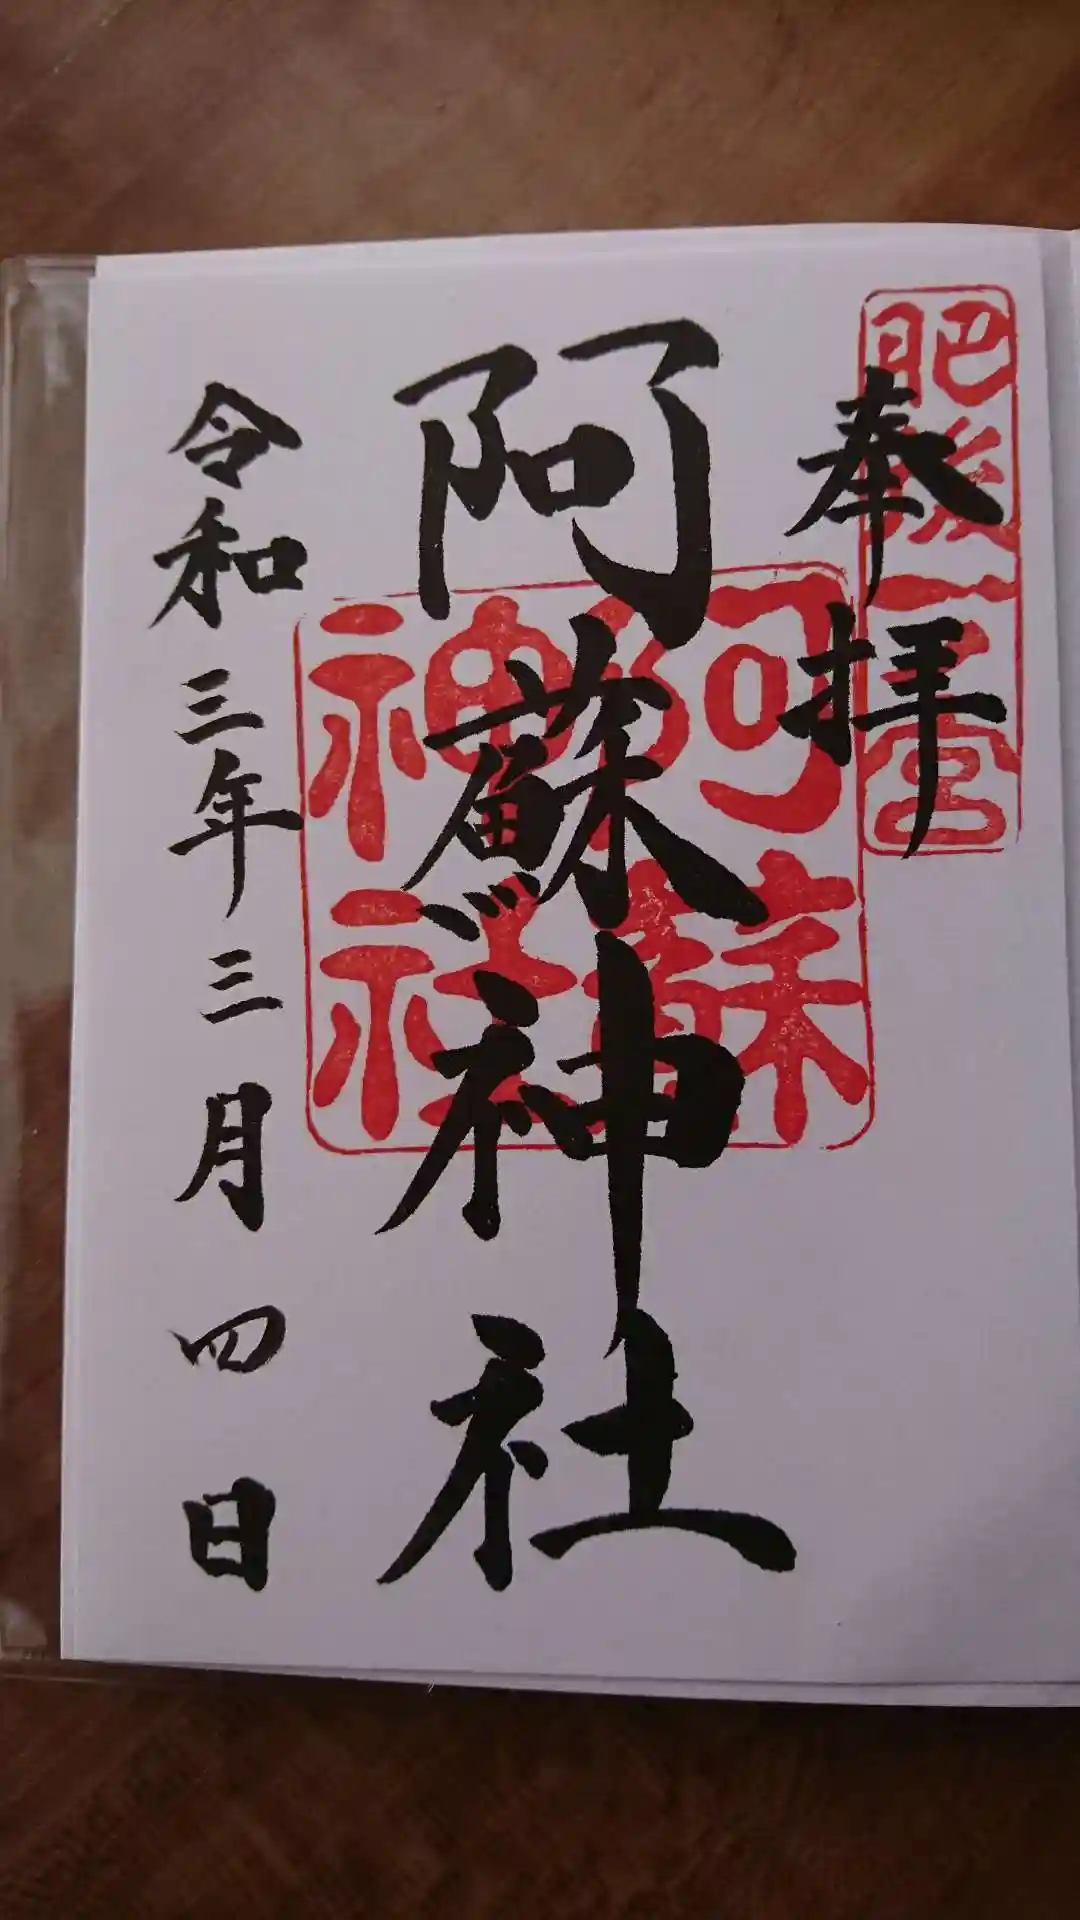 肥後一之宮
奉拝
阿蘇神社
阿蘇神社
令和三年三月四日